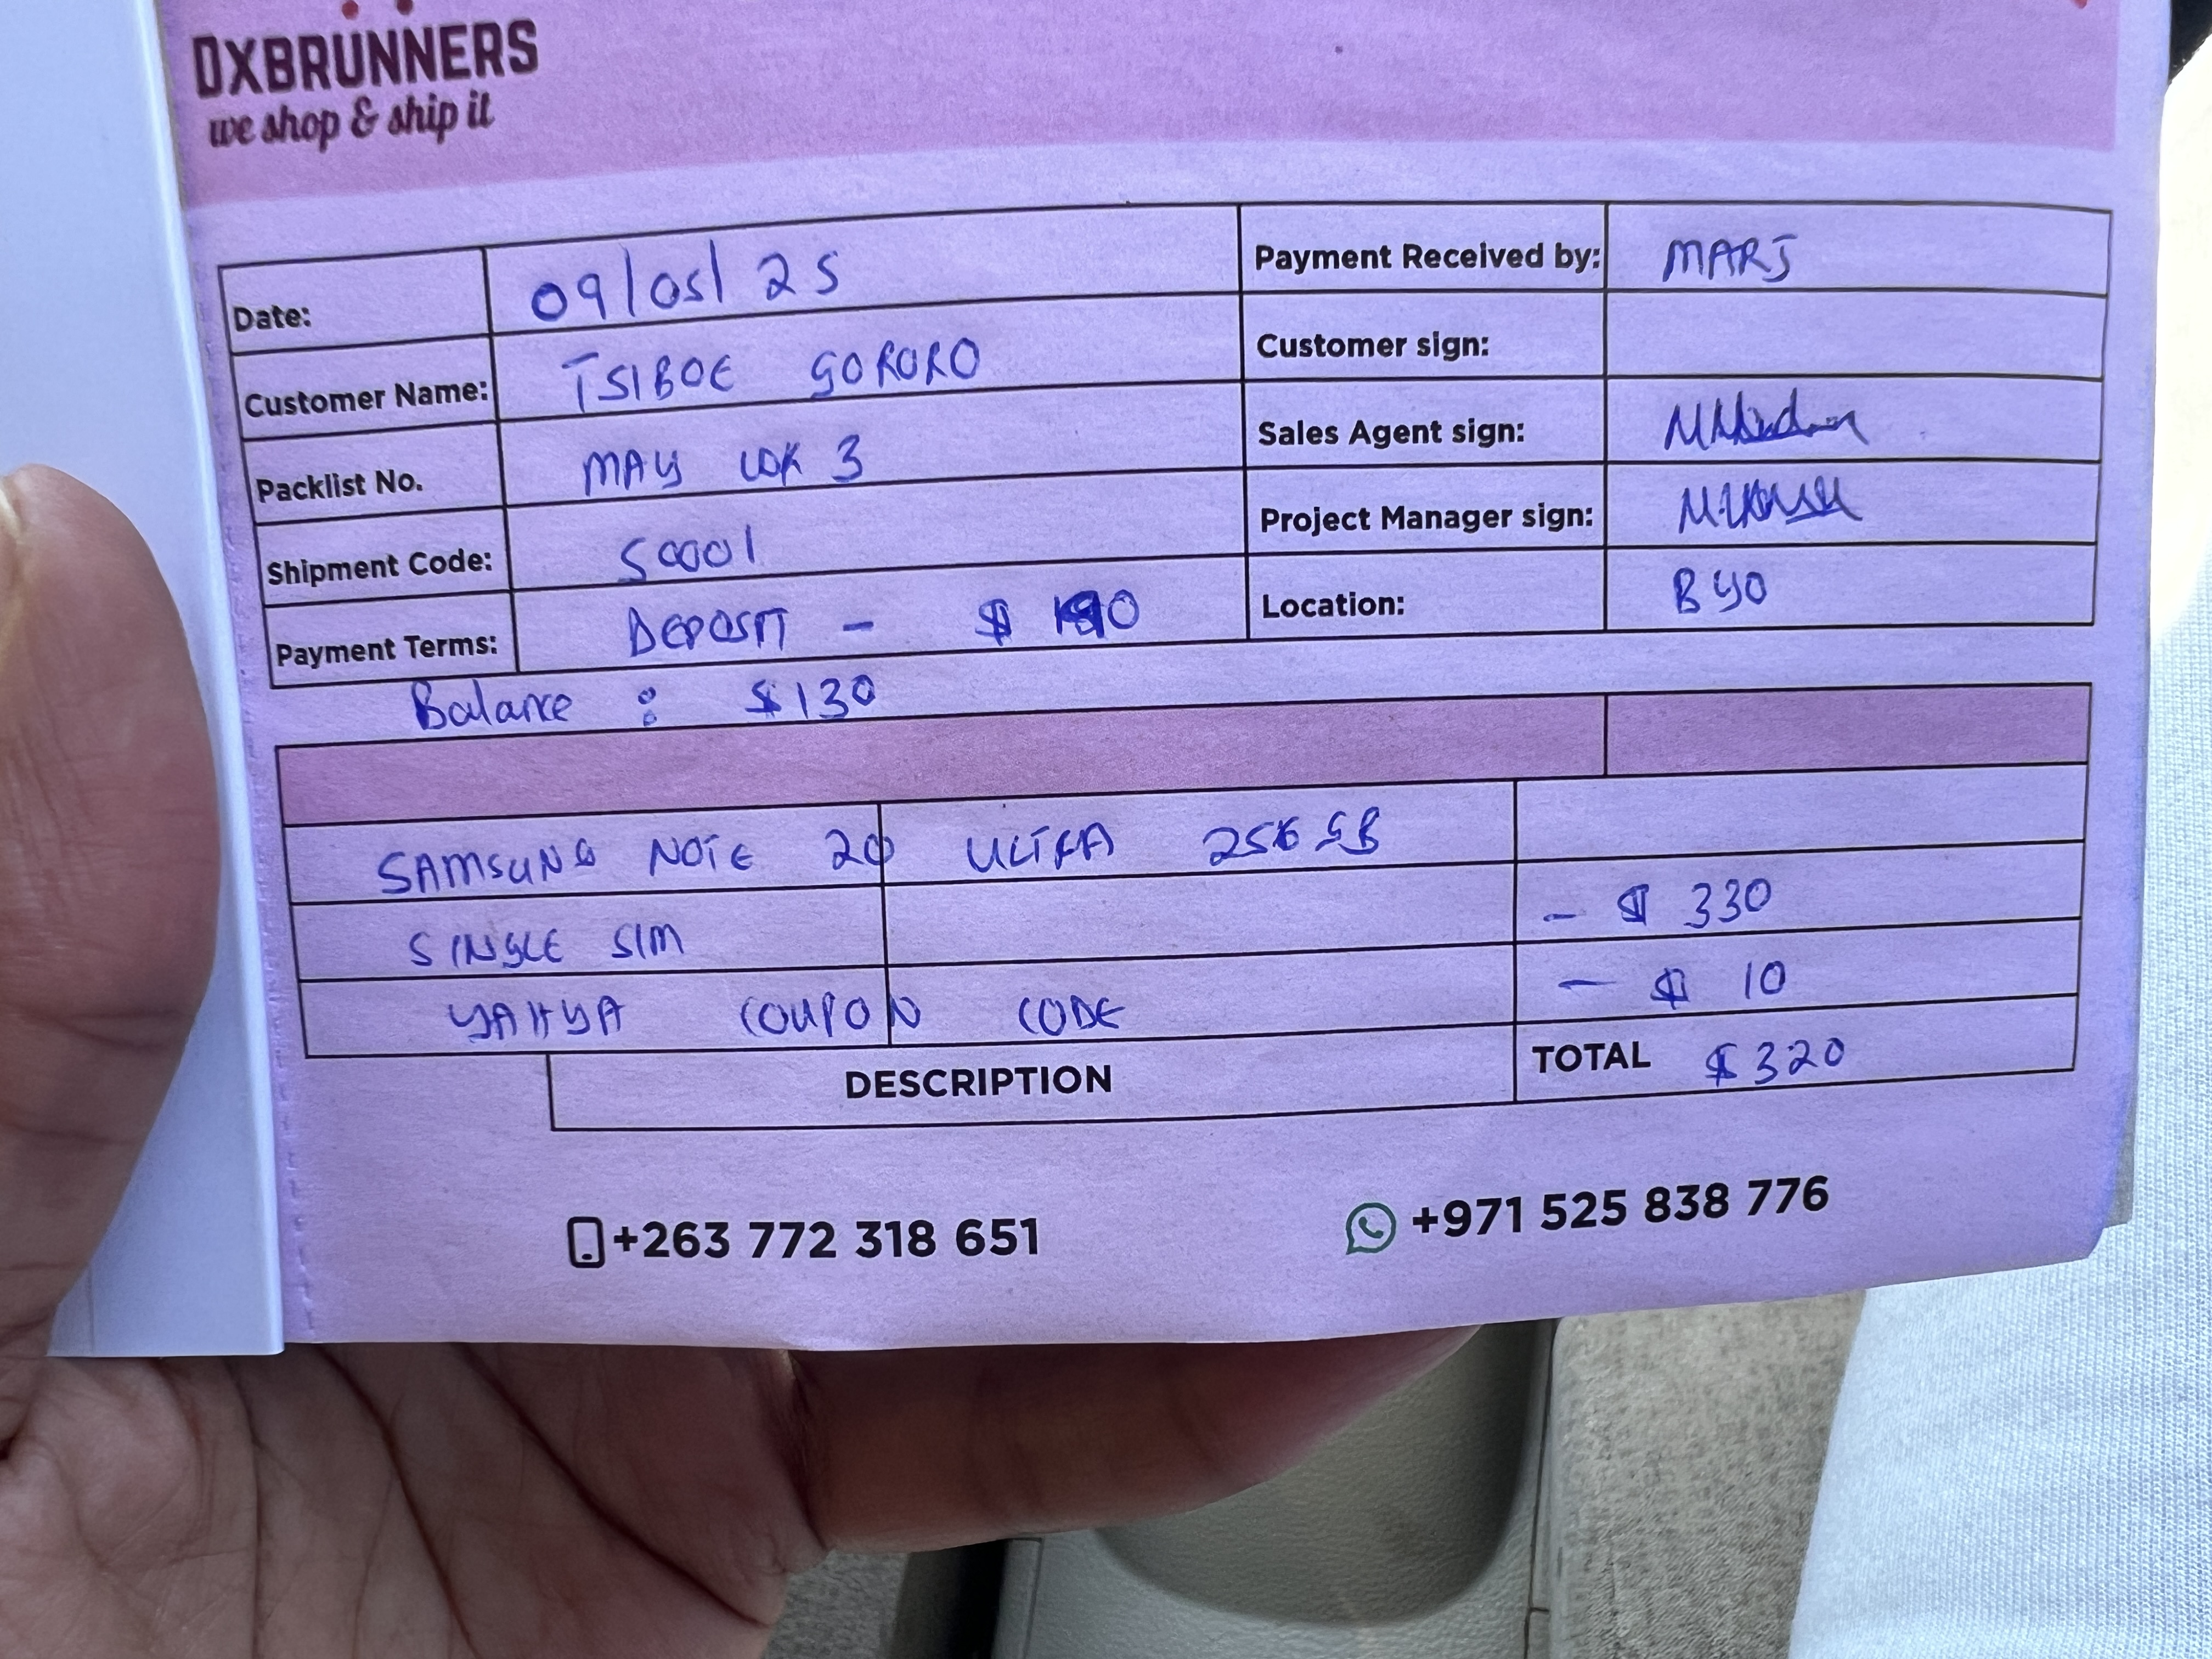 DXBRUNNERS
we shop & ship it
Date: 09/05/25
Customer Name: TSIBOE GORORO
Packlist No. MAY WK 3
Shipment Code: S0001
Payment Terms: DEPOSIT - $ 190
Balance : $130
Payment Received by: MARJ
Customer sign:
Sales Agent sign:
Project Manager sign:
Location: BYO
SAMSUNG NOTE 20 ULTRA 256 GB
SINGLE SIM - $ 330
YAHYA COUPON CODE - $ 10
DESCRIPTION TOTAL $320
+263 772 318 651 +971 525 838 776